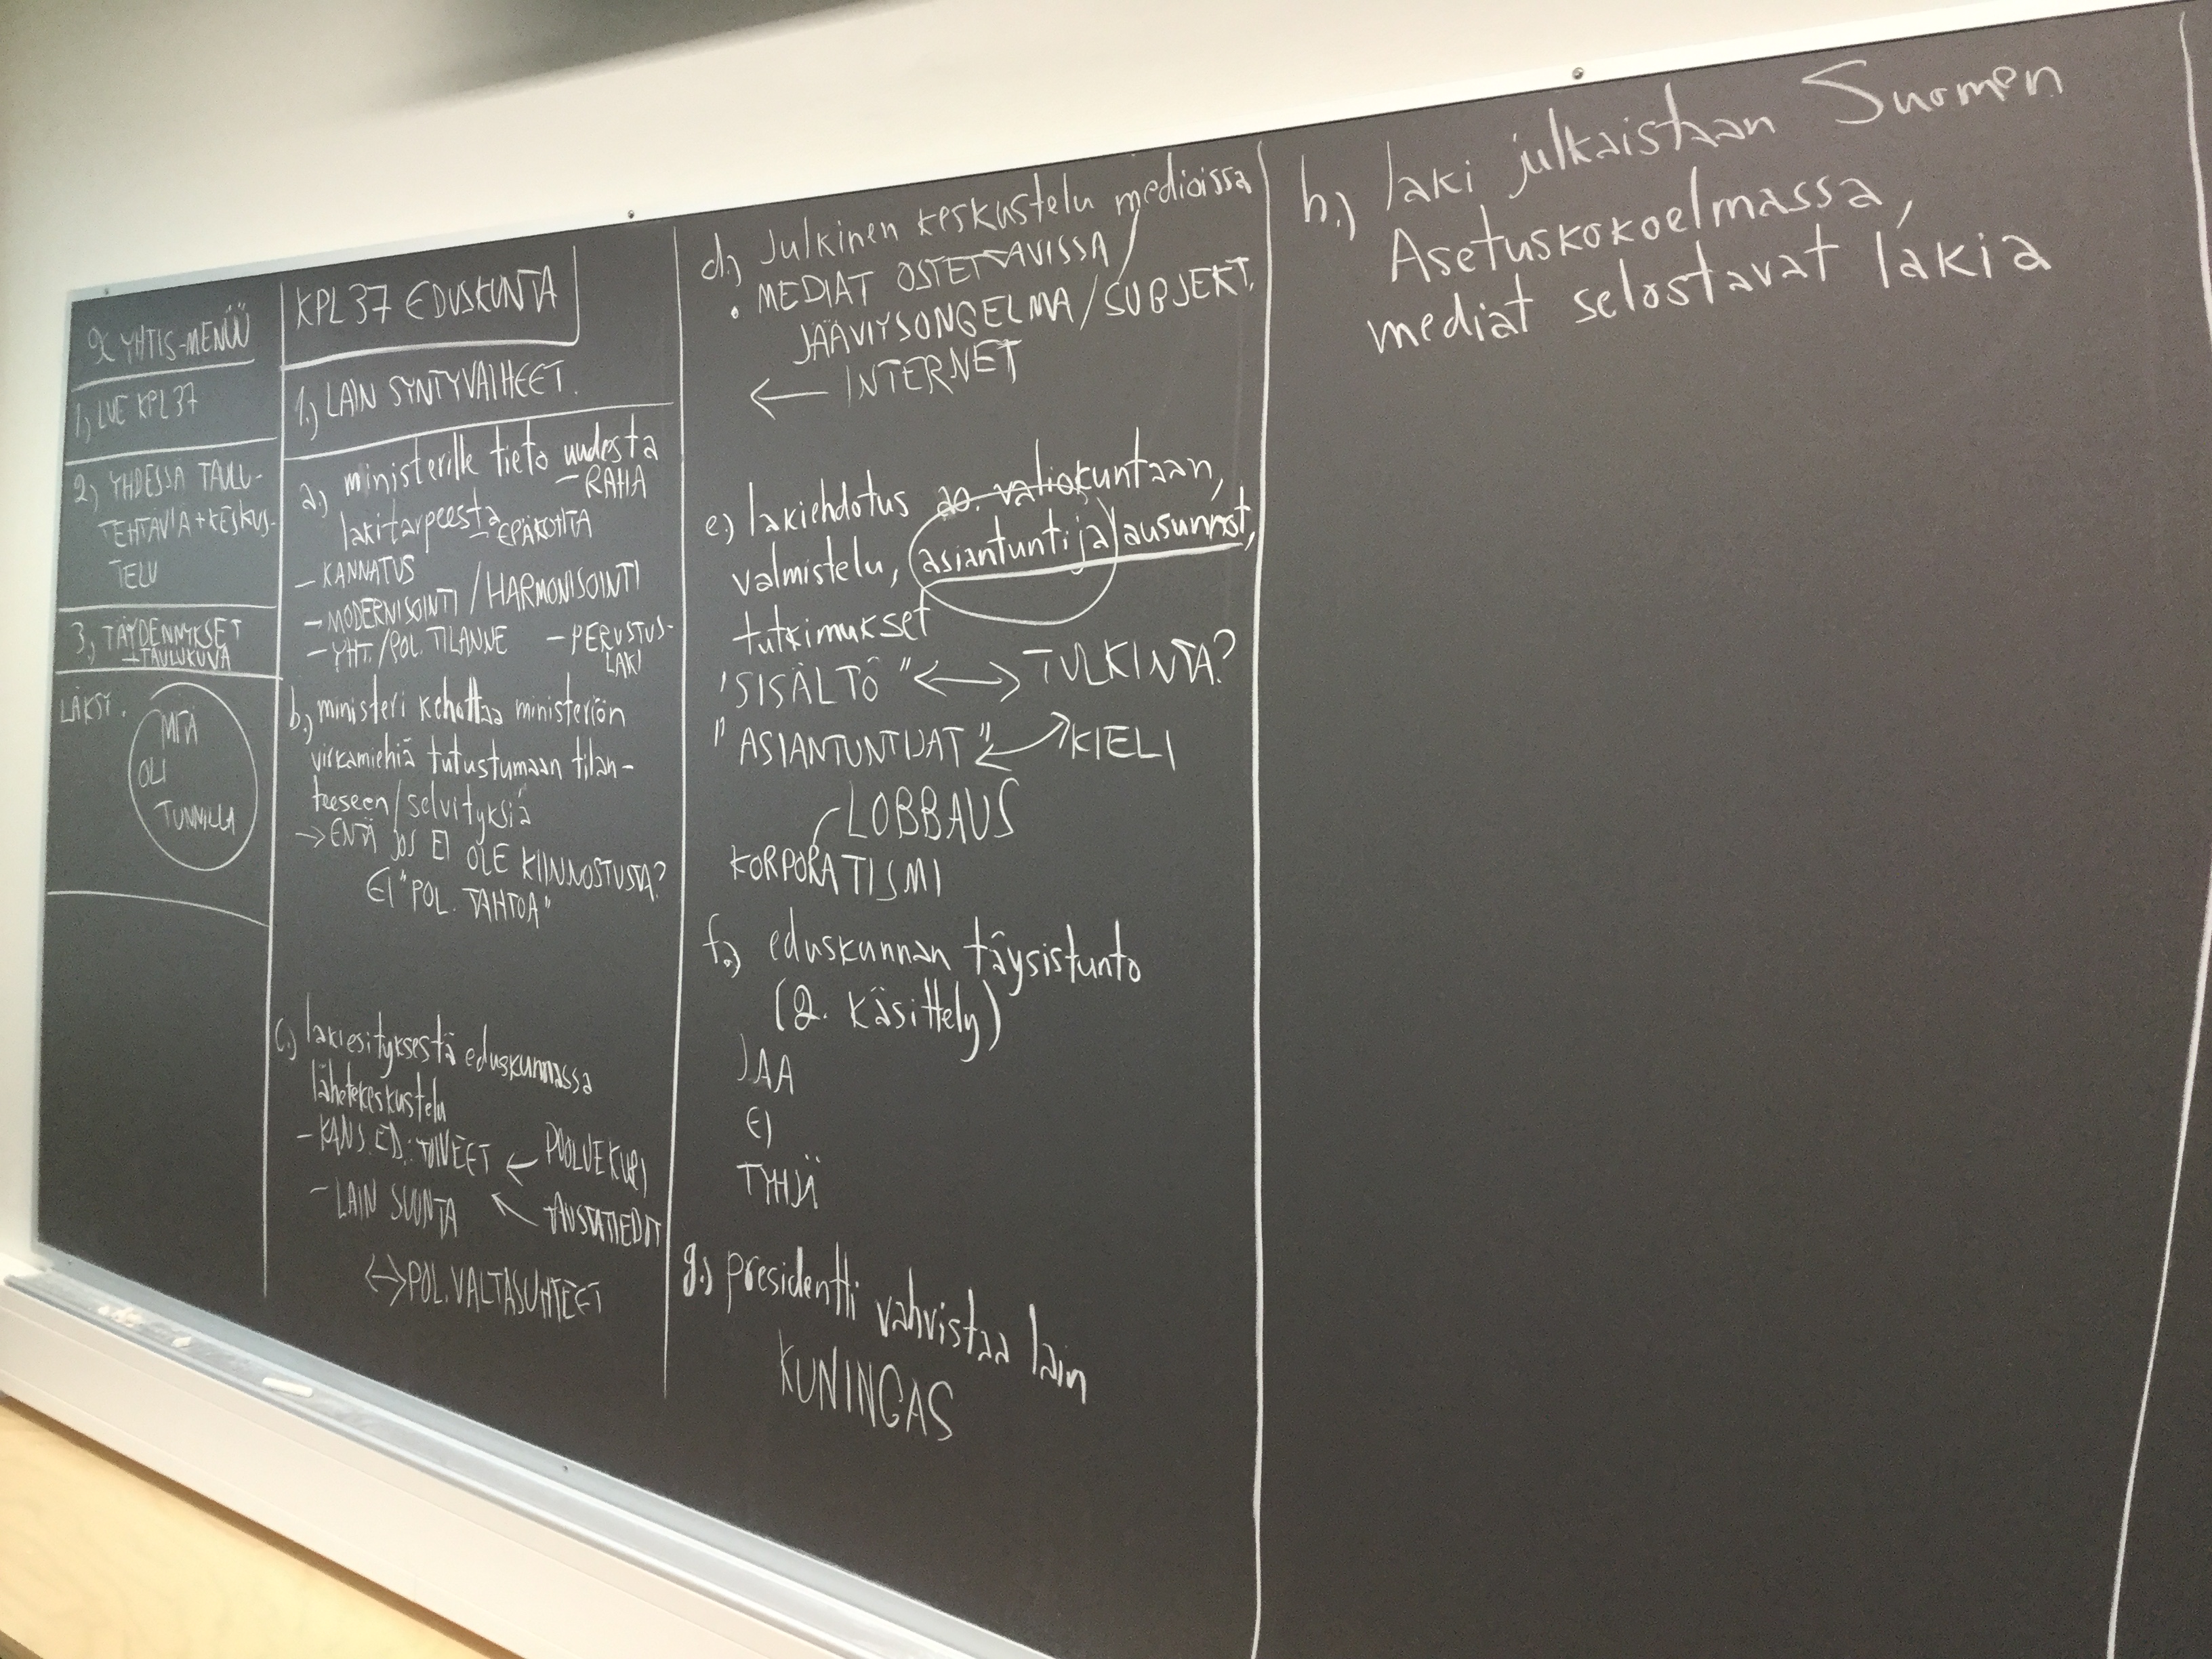 9C YHTIS-MENÜÜ
1) LUE KPL 37
2) YHDESSÄ TAULU-
TEHTÄVIÄ + KESKUS-
TELU
3) TÄYDENNYKSET
+TAULUKUVA
LÄKSY.
MITÄ
OLI
TUNNILLA
KPL 37 EDUSKUNTA
1.) LAIN SYNTYVAIHEET.
a.) ministerille tieto uudesta
- RAHA
lakitarpeesta
- EPÄKOHTA
- KANNATUS
- MODERNISOINTI / HARMONISOINTI
- YHT./POL. TILANNE - PERUSTUS-
LAKI
b.) ministeri kehottaa ministeriön
virkamiehiä tutustumaan tilan-
teeseen/selvityksiä
→ ENTÄ JOS EI OLE KIINNOSTUSTA?
EI "POL. TAHTOA"
c.) lakiesityksestä eduskunnassa
lähetekeskustelu
- KANS.ED.: TOIVEET ← PUOLUEKURI
- LAIN SUUNTA ← TAUSTATIEDOT
↔ POL. VALTASUHTEET
d.) Julkinen keskustelu medioissa
• MEDIAT OSTETTAVISSA /
JÄÄVIYSONGELMA / SUBJEKT.
← INTERNET
e.) lakiehdotus ao. valiokuntaan,
valmistelu, asiantuntijalausunnot,
tutkimukset
"SISÄLTÖ" ↔ TULKINTA?
"ASIANTUNTIJAT" ↔ KIELI
LOBBAUS
KORPORATISMI
f.) eduskunnan täysistunto
(2. käsittely)
JAA
EI
TYHJÄ
g.) presidentti vahvistaa lain
KUNINGAS
h.) laki julkaistaan Suomen
Asetuskokoelmassa,
mediat selostavat lakia